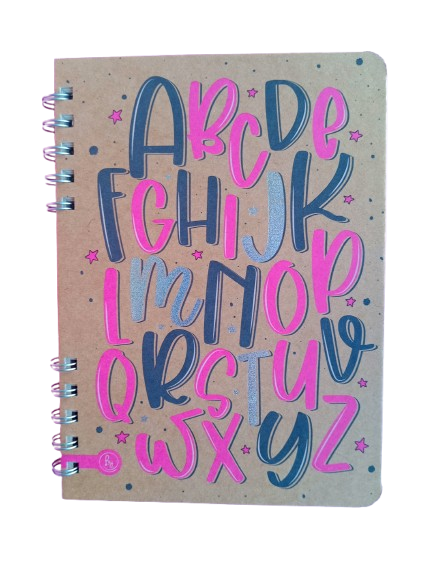 ABCDe
FGHIJK
LmNOP
QRSTUV
WXYZ